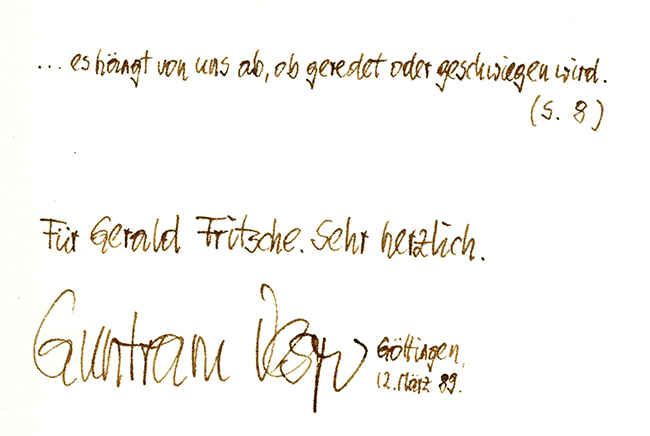 ... es hängt von uns ab, ob geredet oder geschwiegen wird.
(S. 8)
Für Gerald Fritsche. Sehr herzlich.
Guntram Vesper
Göttingen,
12. März 89.